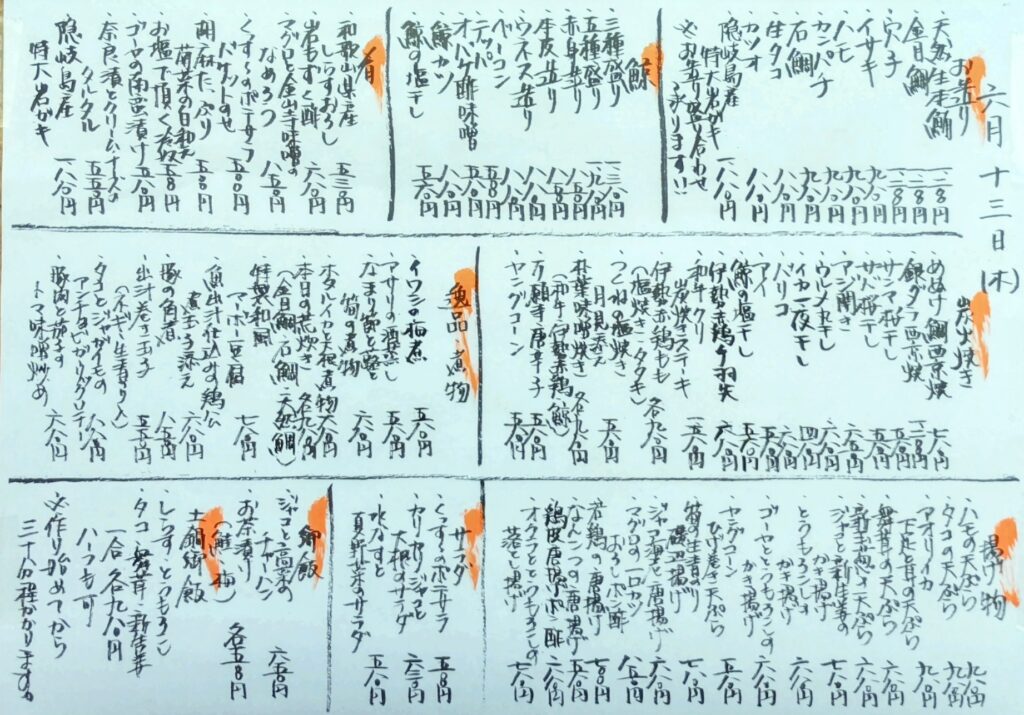 六月十三日(木)
お造り
・天然生本鮪 一二八〇円
・金目鯛 一二八〇円
・穴子 一二八〇円
・イサキ 九八〇円
・ハモ 九八〇円
・カンパチ 九八〇円
・石鯛 九八〇円
・生タコ 八八〇円
・カツオ 八八〇円
・隠岐島産
特大岩ガキ 一八八〇円
※お造り盛り合わせ
承ります!!
鯨
・三種盛り
・五種盛り
・赤身造り
・本皮造り
・ウネス造り
・ベーコン
・コロ
・オバケ酢味噌
・鯨カツ
・鯨の塩干し 五八〇円
肴
・和歌山県産
しらすおろし 五三〇円
・岩もずく酢 六八〇円
・マグロと金山寺味噌の
なめろう 八五〇円
・くずし豆のポテサラ
バケットのせ 五八〇円
・胡麻たっぷり
菊菜の白和え 五八〇円
・お塩で頂く冷奴 五八〇円
・ゴーヤの南蛮漬け 五八〇円
・奈良漬とクリームチーズの
タルタル 五五〇円
・隠岐島産
特大岩ガキ 一八八〇円
炭火焼き
・めぬけ鯛西京焼 七八〇円
・銀ダラ西京焼 一二八〇円
・サンマ桜干し 五八〇円
・サバ桜干し 五八〇円
・アジ開き
・ウルメ丸干し
・イカ一夜干し
・バリコ
・エイ
・鯨の塩干し 五八〇円
・伊勢赤鶏手羽先 六八〇円
・和牛クリ
炭焼きステーキ 一五八〇円
・伊勢赤鶏もも
(塩焼き・タタキ) 各九八〇円
・つくねの塩焼き
月見添え 五八〇円
・朴葉味噌焼き
(和牛・伊勢赤鶏・鯨) 各九八〇円
・万願寺唐辛子 五八〇円
・ヤングコーン
逸品・煮物
・イワシの梅煮 五八〇円
・アサリの酒蒸し 五八〇円
・なまり節と蕗と
筍の煮物 六八〇円
・ホタルイカ大根煮物 六八〇円
・本日の荒炊き 各九八〇円
(金目鯛・石鯛・天然鯛)
・特製和風
マーボー豆腐 七八〇円
・魚出汁仕込みの鶏公
煮玉子添え 六八〇円
・豚の角煮 八八〇円
・出汁巻き玉子
(ネギ・生青のり入) 五五〇円
・タコとジャガイモの
アンチョビガーリックグラタン 八八〇円
・豚肉と茄子の
トマト味噌炒め 六八〇円
揚げ物
・ハモの天ぷら 九八〇円
・タコの天ぷら 九八〇円
・アオリイカ
下足と耳の天ぷら 九八〇円
・舞茸の天ぷら 六八〇円
・新玉ねぎの天ぷら 六八〇円
・ジャコと新生姜の
かき揚げ 七八〇円
・とうもろこしの
かき揚げ 六八〇円
・ゴーヤととうもろこしの
かき揚げ 六八〇円
・ヤングコーン
ひげ巻き天ぷら 五八〇円
・筍の生青のり
磯辺揚げ 七八〇円
・ジャコと海老の唐揚げ 六八〇円
・マグロの一口カツ
おろしポン酢 八五〇円
・若鶏の唐揚げ 七八〇円
・なんこつの唐揚げ 五八〇円
・鶏皮唐揚ポン酢 五八〇円
・オクラととうもろこしの
落とし揚げ 七八〇円
サラダ
・くずし豆のポテサラ 五八〇円
・カリカリジャコと
大根のサラダ 六三〇円
・水なすと
夏野菜のサラダ 五八〇円
御飯
・ジャコと高菜の
チャーハン 六五〇円
・お茶漬け
(鮭・梅) 各五八〇円
土鍋御飯
・しらす・とうもろこし
・タコ・舞茸・新生姜
一合各九八〇円
ハーフも可
※作り始めてから
三十分程かかります。